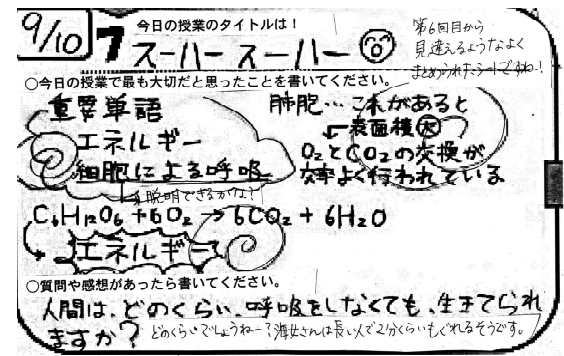 9/10
7
今日の授業のタイトルは！
スーハースーハー
第6回目から
見違えるようなよく
まとめられたシートですね！
○今日の授業で最も大切だと思ったことを書いてください。
重要単語
エネルギー
細胞による呼吸
説明できるかな？
肺胞…これがあると
表面積大
O₂とCO₂の交換が
効率よく行われている
C₆H₁₂O₆+6O₂→6CO₂+6H₂O
エネルギー
○質問や感想があったら書いてください。
人間は、どのくらい、呼吸をしなくても、生きてられ
ますか？
どのくらいでしょうねー？海女さんは長い人で2分くらいもぐれるそうです。